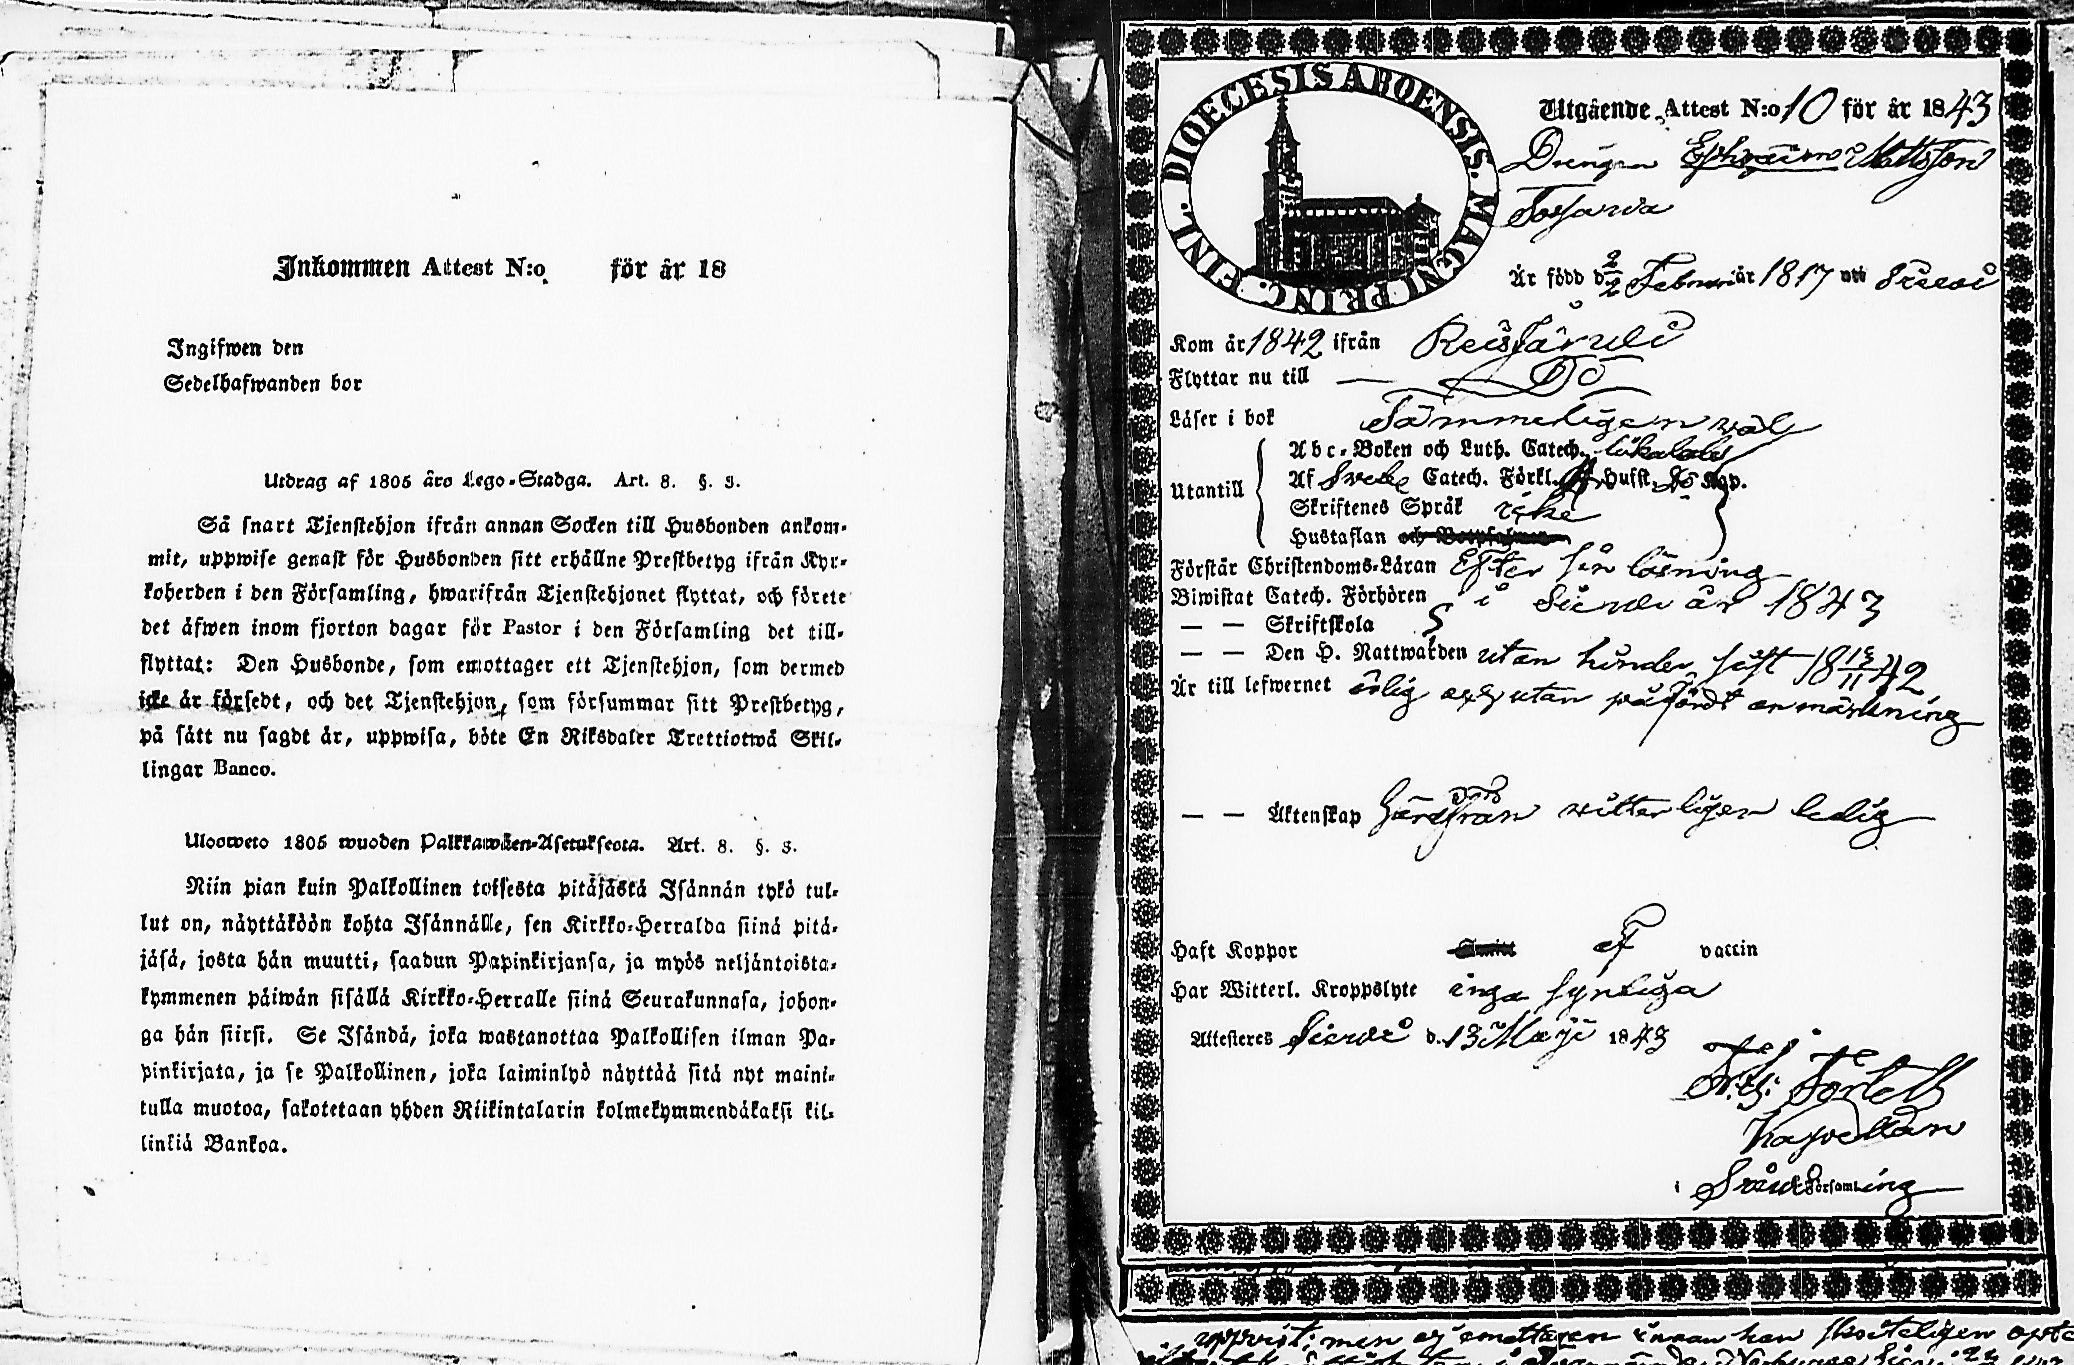 Inkommen Attest N:o för år 18
Ingifwen den
Sedelhafwanden bor
Utdrag af 1805 åro Lego-Stadga. Art. 8. §. 3.
Så snart Tjenstehjon ifrån annan Socken till Husbonden ankom-
mit, uppwise genast för Husbonden sitt erhållne Prestbetyg ifrån Kyr-
koherden i den Församling, hwarifrån Tjenstehjonet flyttat, och förete
det äfwen inom fjorton dagar för Pastor i den Församling det till-
flyttat: Den Husbonde, som emottager ett Tjenstehjon, som dermed
icke är försedt, och det Tjenstehjon, som försummar sitt Prestbetyg,
på sätt nu sagdt är, uppwisa, böte En Riksdaler Trettiotwå Skil-
lingar Banco.
Ulooweto 1805 wuoden Palkkawäen-Asetukseota. Art. 8. §. 3.
Niin pian kuin Palkollinen toisesta pitäjästä Isännän tykö tul-
lut on, näyttäköön kohta Isännälle, sen Kirkko-Herralda siinä pitä-
jäsä, josta hän muutti, saadun Papinkirjansa, ja myös neljäntoista-
kymmenen päiwän sisällä Kirkko-Herralle siinä Seurakunnasa, johon-
ga hän siirsi. Se Isändä, joka wastanottaa Palkollisen ilman Pa-
pinkirjata, ja se Palkollinen, joka laiminlyö näyttää sitä nyt maini-
tulla muotoa, sakotetaan yhden Riikintalarin kolmekymmendäkaksi kil-
linkiä Bankoa.
DIOECESIS ABOENSIS. MAGNI PRINC. FINL.
Utgående Attest N:o 10 för år 1843
Drengen Ephraim Mattsson
Tossawa
Är född d 2/2 Februari år 1817 uti Sievi
Kom år 1842 ifrån Reisjärvi
Flyttar nu till — Do
Läser i bok Tämmeligen väl
Utantill
Abc-Boken och Luth. Catech. likaledes
Af Svebe Catech. Förkl. Hufst. Kap.
Skriftenes Språk icke
Hustaflan och Botpsalmer
Förstår Christendoms-Läran Efter sin läsning
Biwistat Catech. Förhören i Sievi år 1843
— — Skriftskola
— — Den H. Nattwarden utan hinder, sist 18 42
Är till lefwernet ärlig och utan påförd anmärkning
— — Äktenskap härifrån witterligen ledig
Haft Koppor ej vaccin
Har Witterl. Kroppslyte inga synliga
Attesteres Sievi d. 13 Maji 1843
Kapellan
i Sievi Församling
men ej emottagen innan han